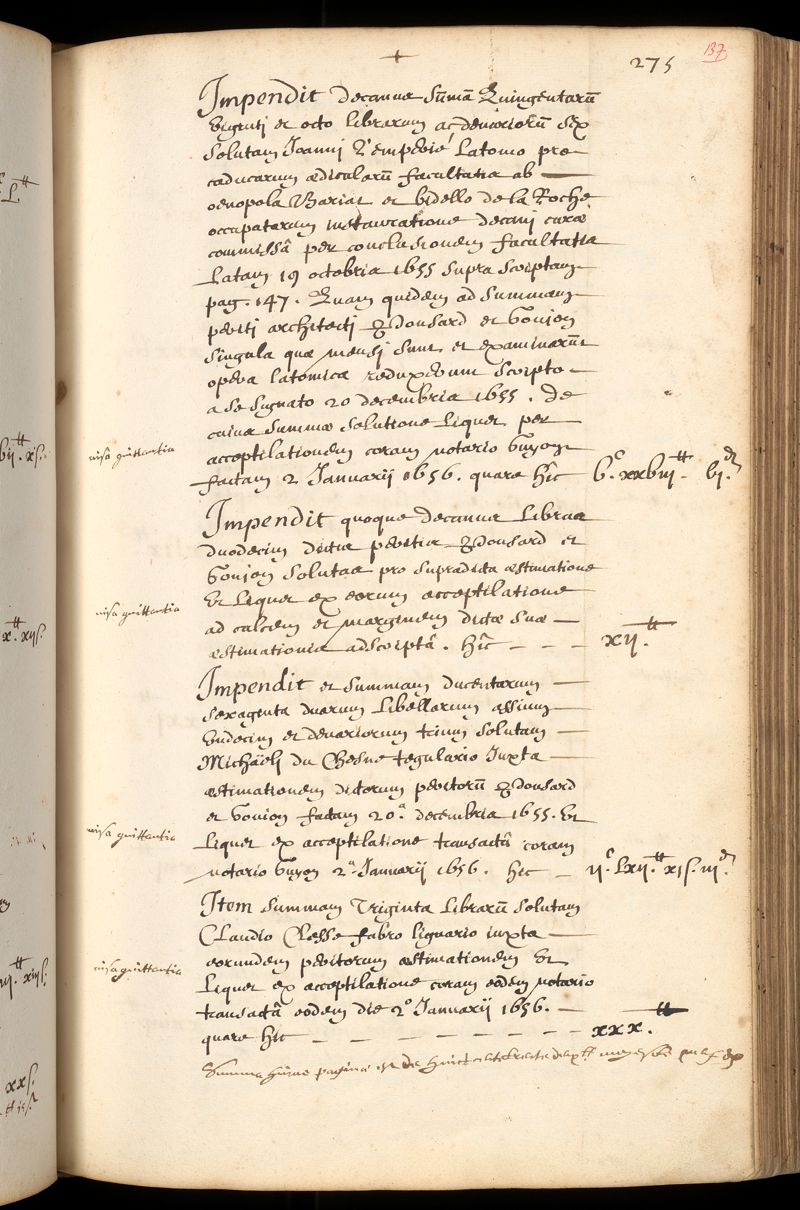 275
137
Impendit decanus sūmā Quingentarū
viginti et octo librarum ac denariorū sex
solutam Joannj Latomo pro
caducarum ædicularū facultatis ab
oenopola Bariat et bidello de la Roche
occupatarum instauratione decanj curæ
commissâ per conclusionem facultatis
Latam 19 octobris 1655 supra scriptam
pag. 147. Quam quidem ad summam
periti architecti Edouard et Goujon
singula quæ mensj sunt et examinarūt
opera latomica reduxerunt scripto
a se signato 20 decembris 1655. De
cuius summæ solutione liquet per
visa quittantia
acceptilationem coram notario Guyon
factam 2 Januarij 1656. quare hîc bᶜ.xxbiij.ᵗᵗ bj.ᵈ
Impendit quoque decanus Libras
duodecim dictis peritis Edouard et
Goujon solutas pro supradicta æstimatione
visa quittantia
Et Liquet ex eorum acceptilatione
ad calcem et marginem dictæ suæ
æstimationis adscriptâ. hîc - - - xij.ᵗᵗ
Impendit et summam ducentarum
sexaginta duarum Libellarum assium
undecim et denariorum trium solutam
Michäelj du Chesne tegulario Juxta
æstimationem dictorum peritorū Edouard
et Goujon factam 20.ᵃ decembris 1655. Et
visa quittantia
Liquet ex acceptilatione transactâ coram
notario Guyon 2.ᵃ Januarij 1656. hîc - ijᶜ.lxij.ᵗᵗ xjs. iij.ᵈ
Item summam Triginta Librarū solutam
Claudio Clesse fabro lignario iuxta
visa quittantia
eorundem peritorum æstimationem Et
Liquet ex acceptilatione coram eodem notario
transactâ eodem die 2.º Januarij 1656.
quare hîc - - - - - - - xxx.ᵗᵗ
Summa huius paginæ